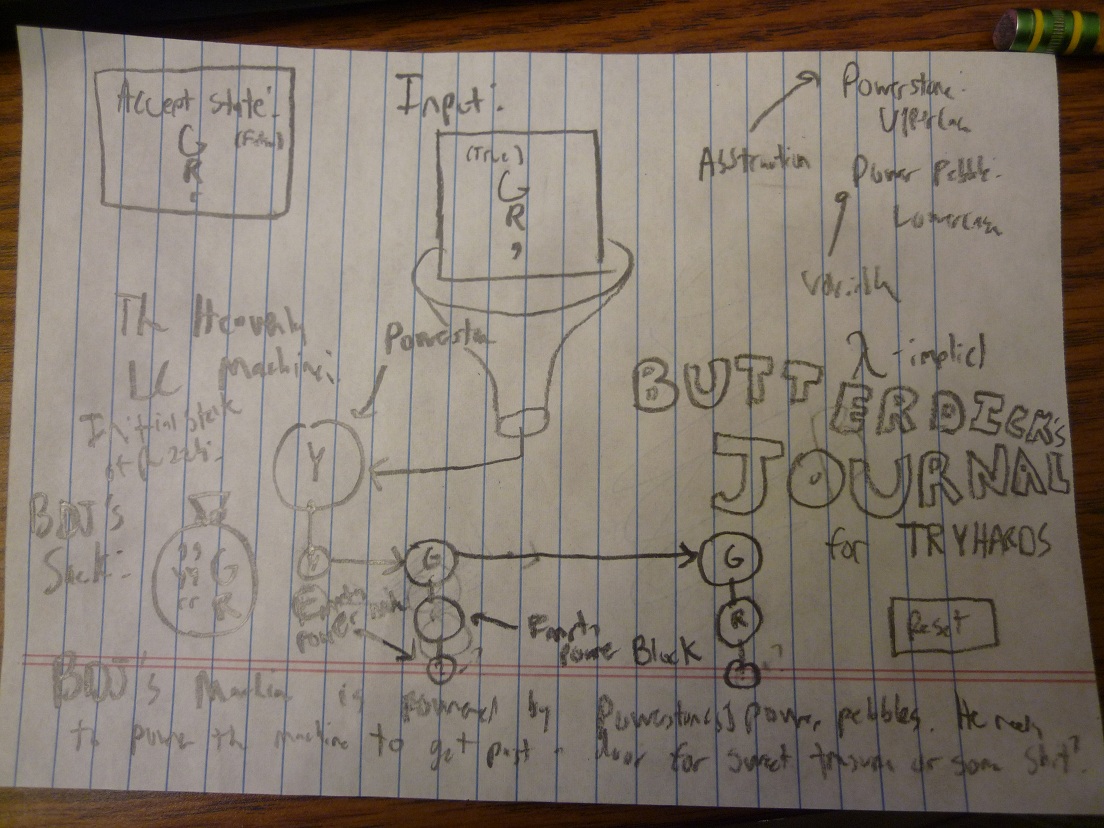 Accept State:
G (False)
R
r
Input:
(True)
G
R
,
Powerstone-
Uppercase
Abstraction
Power Pebble-
Lowercase
Variable
The Heavenly
LC Machine:
Initial state
of puzzle-
Powerstone
λ-implicit
BUTTERDICK'S
JOURNAL
for TRYHARDS
Y
BDJ's
Sack:
G
R
rr
G
G
R
Empty
power
Empty
power Block
?
?
Reset
BDJ's Machine is powered by Powerstones & power pebbles. He needs
to power the machine to get past a door for sweet treasure or some shit?